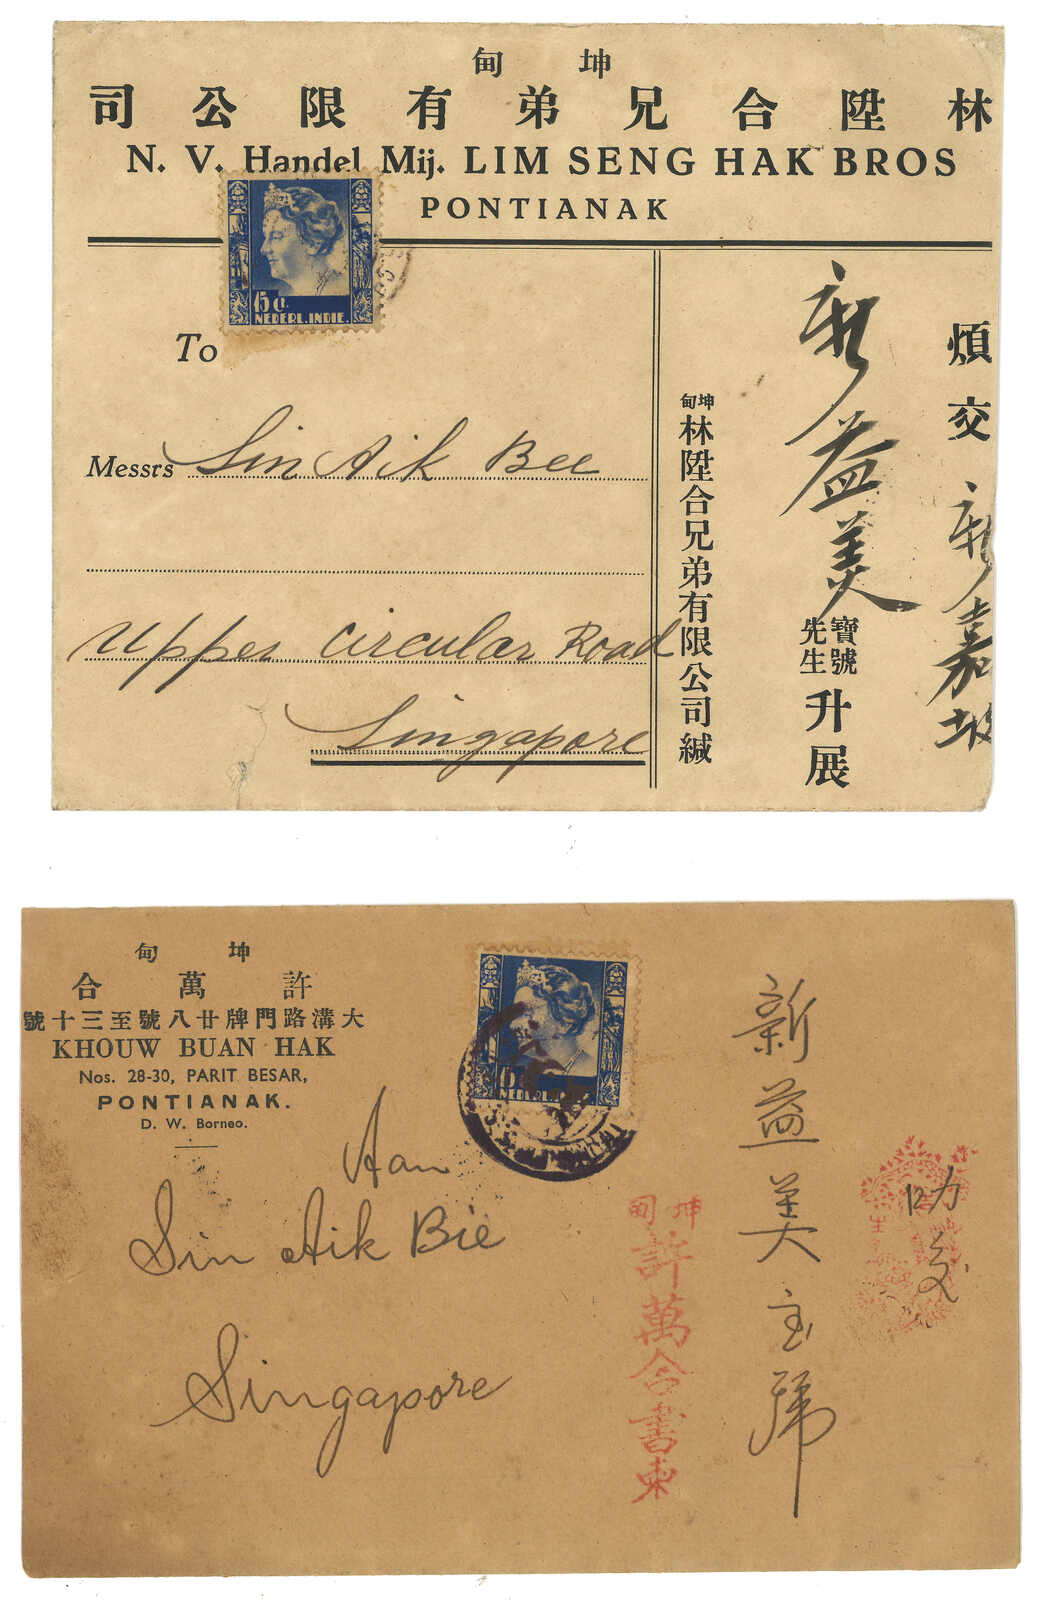 坤甸
林陞合兄弟有限公司
N. V. Handel Mij. LIM SENG HAK BROS
PONTIANAK
15 ct
NEDERL. INDIE.
To
Messrs Sin Aik Bee
Upper Circular Road
Singapore
煩交 新嘉坡
新益美 寶號 先生 升展
坤甸 林陞合兄弟有限公司緘
坤甸
許萬合
大溝路門牌廿八號至三十號
KHOUW BUAN HAK
Nos. 28-30, PARIT BESAR,
PONTIANAK.
D. W. Borneo.
Aan
Sin Aik Bie
Singapore
新益美宝號
坤甸
許萬合書柬